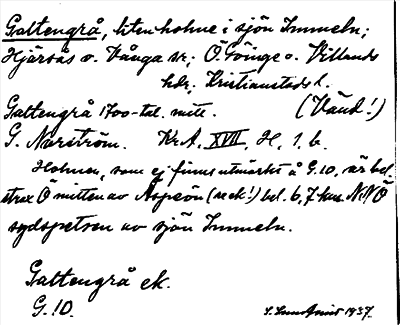 Galtengrå, liten holme i sjön Immeln;
Hjärsås o. Vånga sr; Ö. Göinge o. Villands
hdr, Kristianstads l.
Galtengrå 1700-tal. mitt. (Vänd!)
G. Nordström. Kr. A. XVII, H, 1. b.
Holmen, som ej finns utmärkt å G.10, är bel.
strax Ö mitten av Aspeön (neck!) bel. 6,7 km. NNÖ
sydspetsen av sjön Immeln.
Galtengrå ek.
G. 10.
1937.